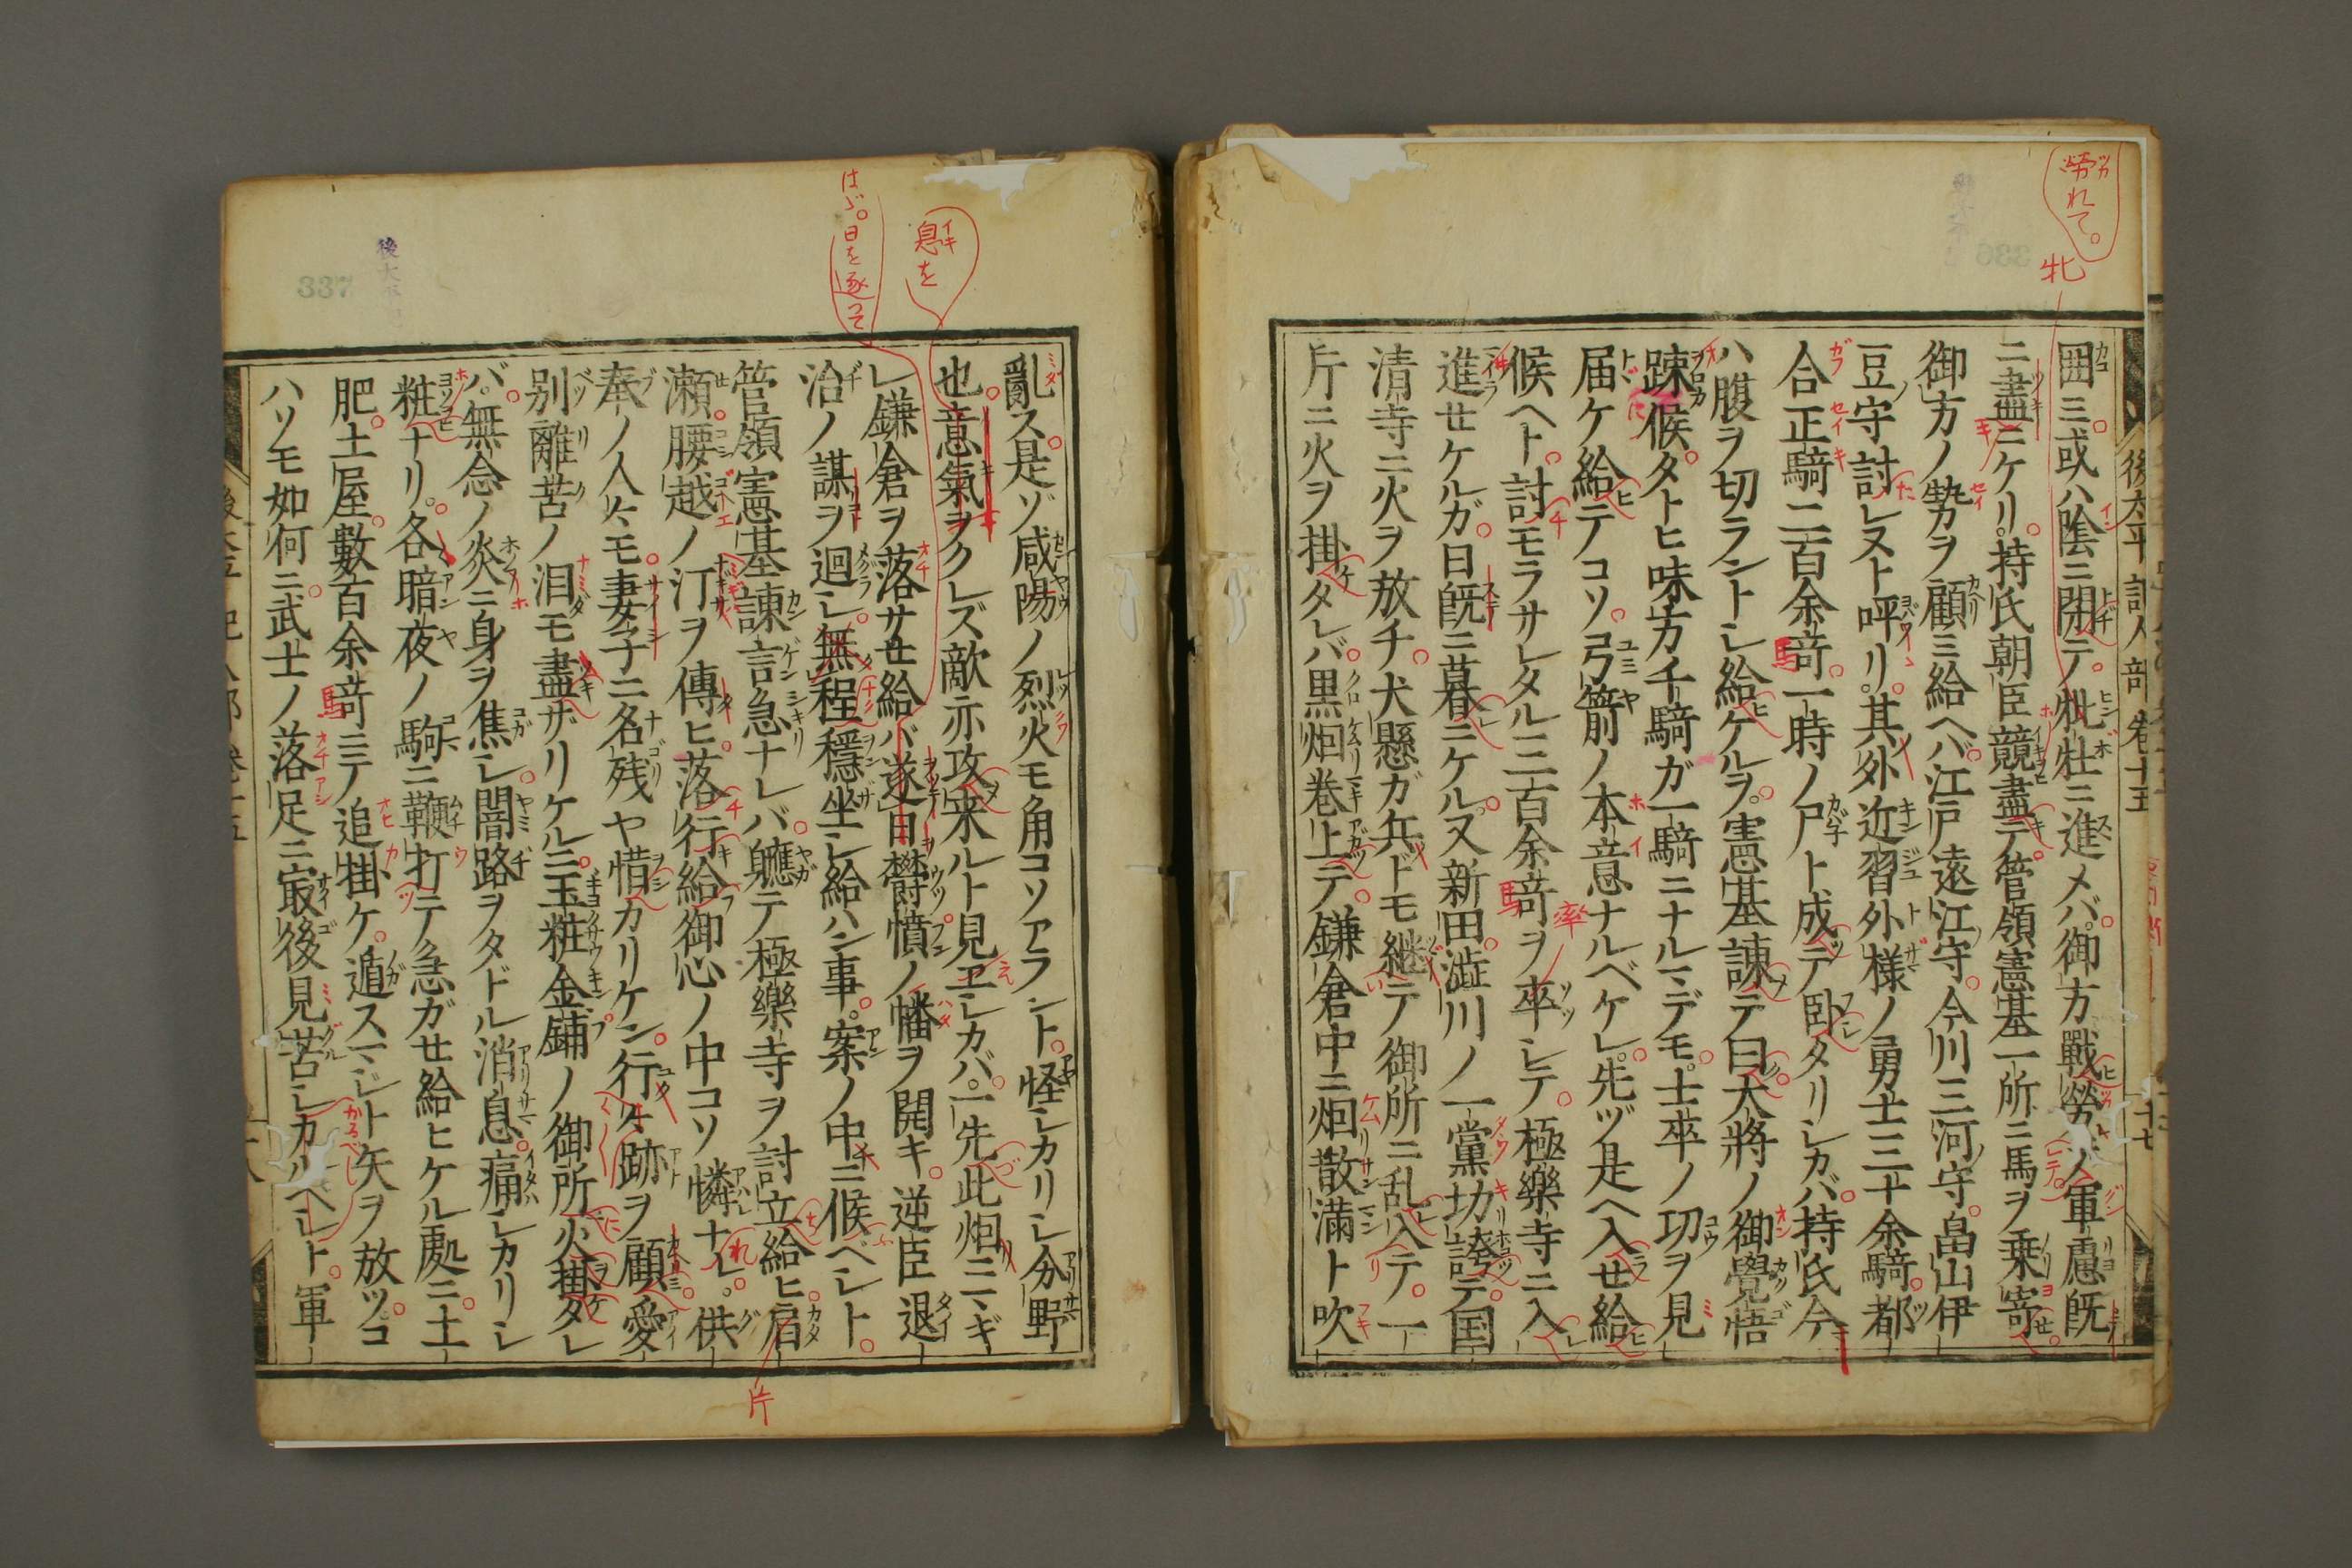 囲ミ或ハ陰ニ閉テ牝牡ニ進メバ御方戰勞ノ軍慮既
ニ盡ニケリ持氏朝臣競盡テ管領憲基一所ニ馬ヲ乗寄
御方ノ勢ヲ顧ミ給ヘバ江戸遠江守今川三河守畠山伊
豆守討レヌト呼リ其外近習外様ノ勇士三十余騎都
合正騎二百余竒一時ノ尸ト成テ卧タリシガ持氏今
ハ腹ヲ切ラントシ給ケルヲ憲基諫テ曰大将ノ御覺悟
踈候タトヒ味方千騎ガ一騎ニナルマデモ士卒ノ切ヲ見
届ケ給テコソ弓箭ノ本意ナルベケレ先ヅ是ヘ入せ給
候ヘト討モラサレタル三百余竒ヲ卒シテ極樂寺ニ入
進せケルガ日既ニ暮ニケル又新田澁川ノ一黨功誇テ国
清寺ニ火ヲ放チ犬懸ガ兵ドモ継テ御所ニ乱入テ一
片ニ火ヲ掛タレバ黒烟巻上テ鎌倉中ニ烟散滿ト吹
後太平記人部 巻十五
勞れて。
牝
亂ス是ゾ咸陽ノ烈火モ角コソアラント怪シカリシ分野
也意氣ヲクレズ敵亦攻来ルト見エシカバ一先此烟ニマギ
レ鎌倉ヲ落サせ給バ遂日欝憤ノ幡ヲ開キ逆臣退
治ノ謀ヲ廻シ無程穩坐シ給ハン事案ノ中ニ候ベシト
管領憲基諫言急ナレバ軈テ極樂寺ヲ討立給ヒ肩
瀬腰越ノ汀ヲ傳ヒ落行給御心ノ中コソ憐ナレ供
奉ノ人々モ妻子ニ名残ヤ惜カリケン行々跡ヲ顧愛
別離苦ノ泪モ盡ザリケルニ玉粧金鋪ノ御所火掛タレ
バ無念ノ炎ニ身ヲ焦シ闇路ヲタドル消息痛シカリシ
粧ナリ各暗夜ノ駒ニ鞭打テ急ガせ給ヒケル処ニ土
肥土屋數百余竒ニテ追掛ケ遁スマジト矢ヲ放ツコ
ハソモ如何ニ武士ノ落足ニ寂後見苦シカルヘシト軍
息を
はゞ。日を逐って
片
337